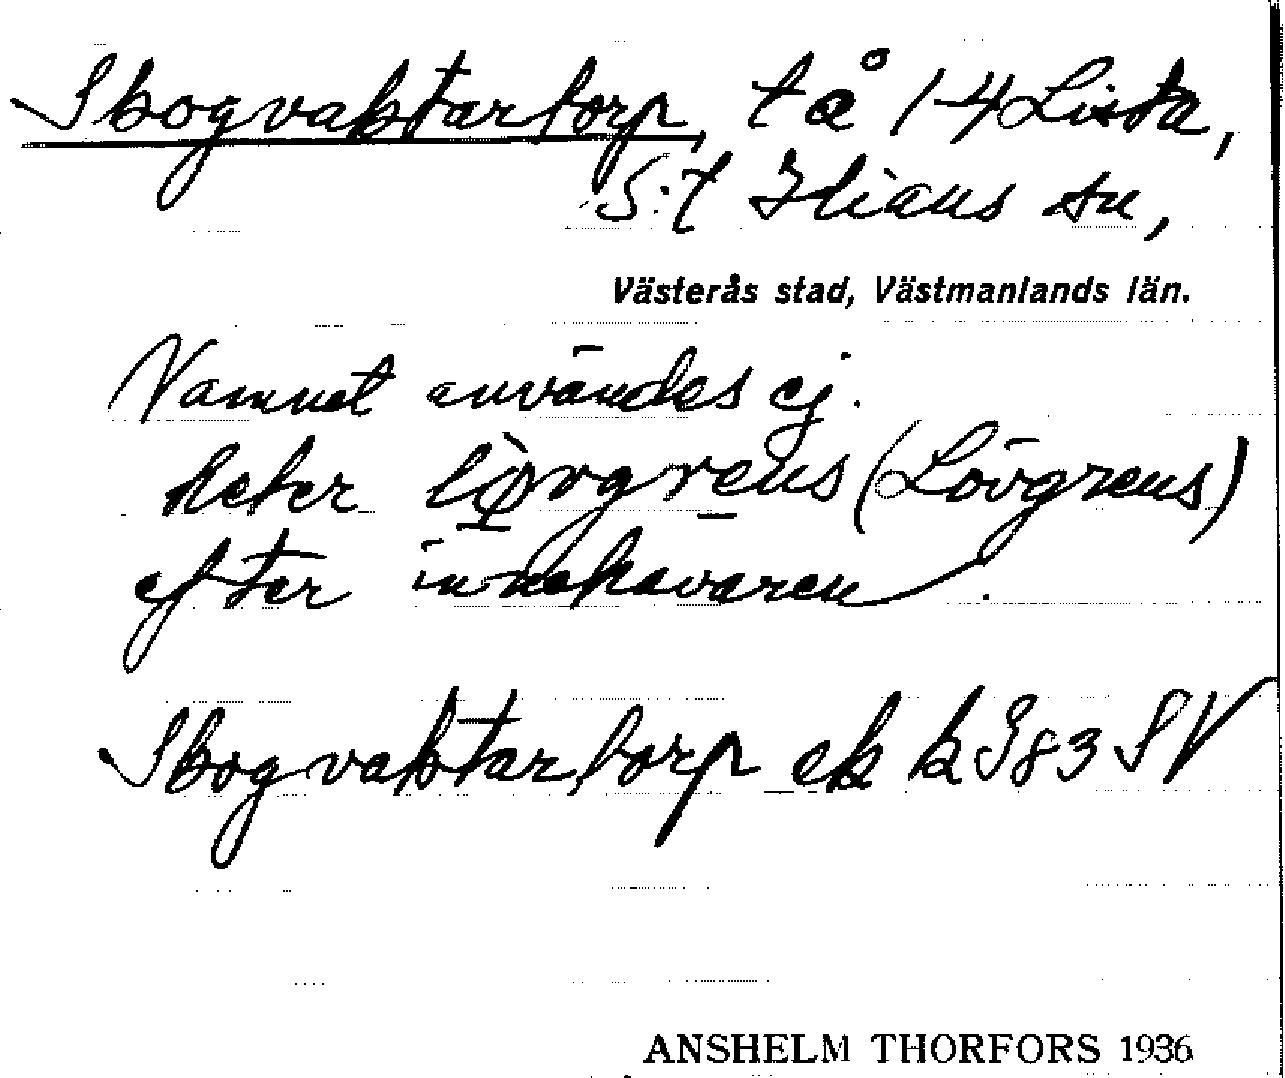 Skogvaktartorp, t å 1-4 Lista,
S:t Ilians sn,
Västerås stad, Västmanlands län.
Namnet användes ej.
Heter lövgrens (Lövgrens)
efter innehavaren.
Skogvaktartorp ek k 983 SV
ANSHELM THORFORS 1936